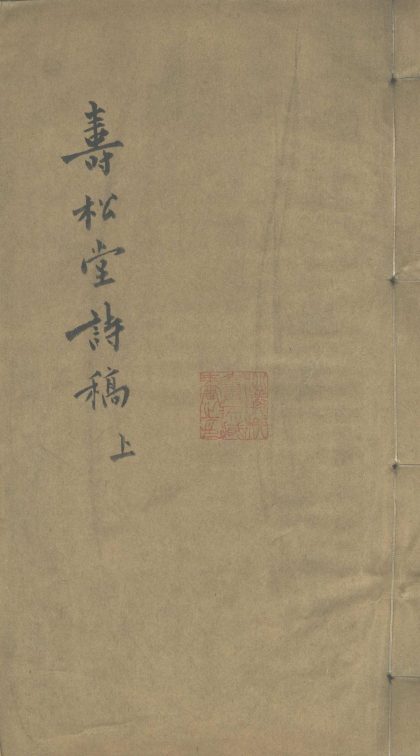 壽松堂詩稿 上